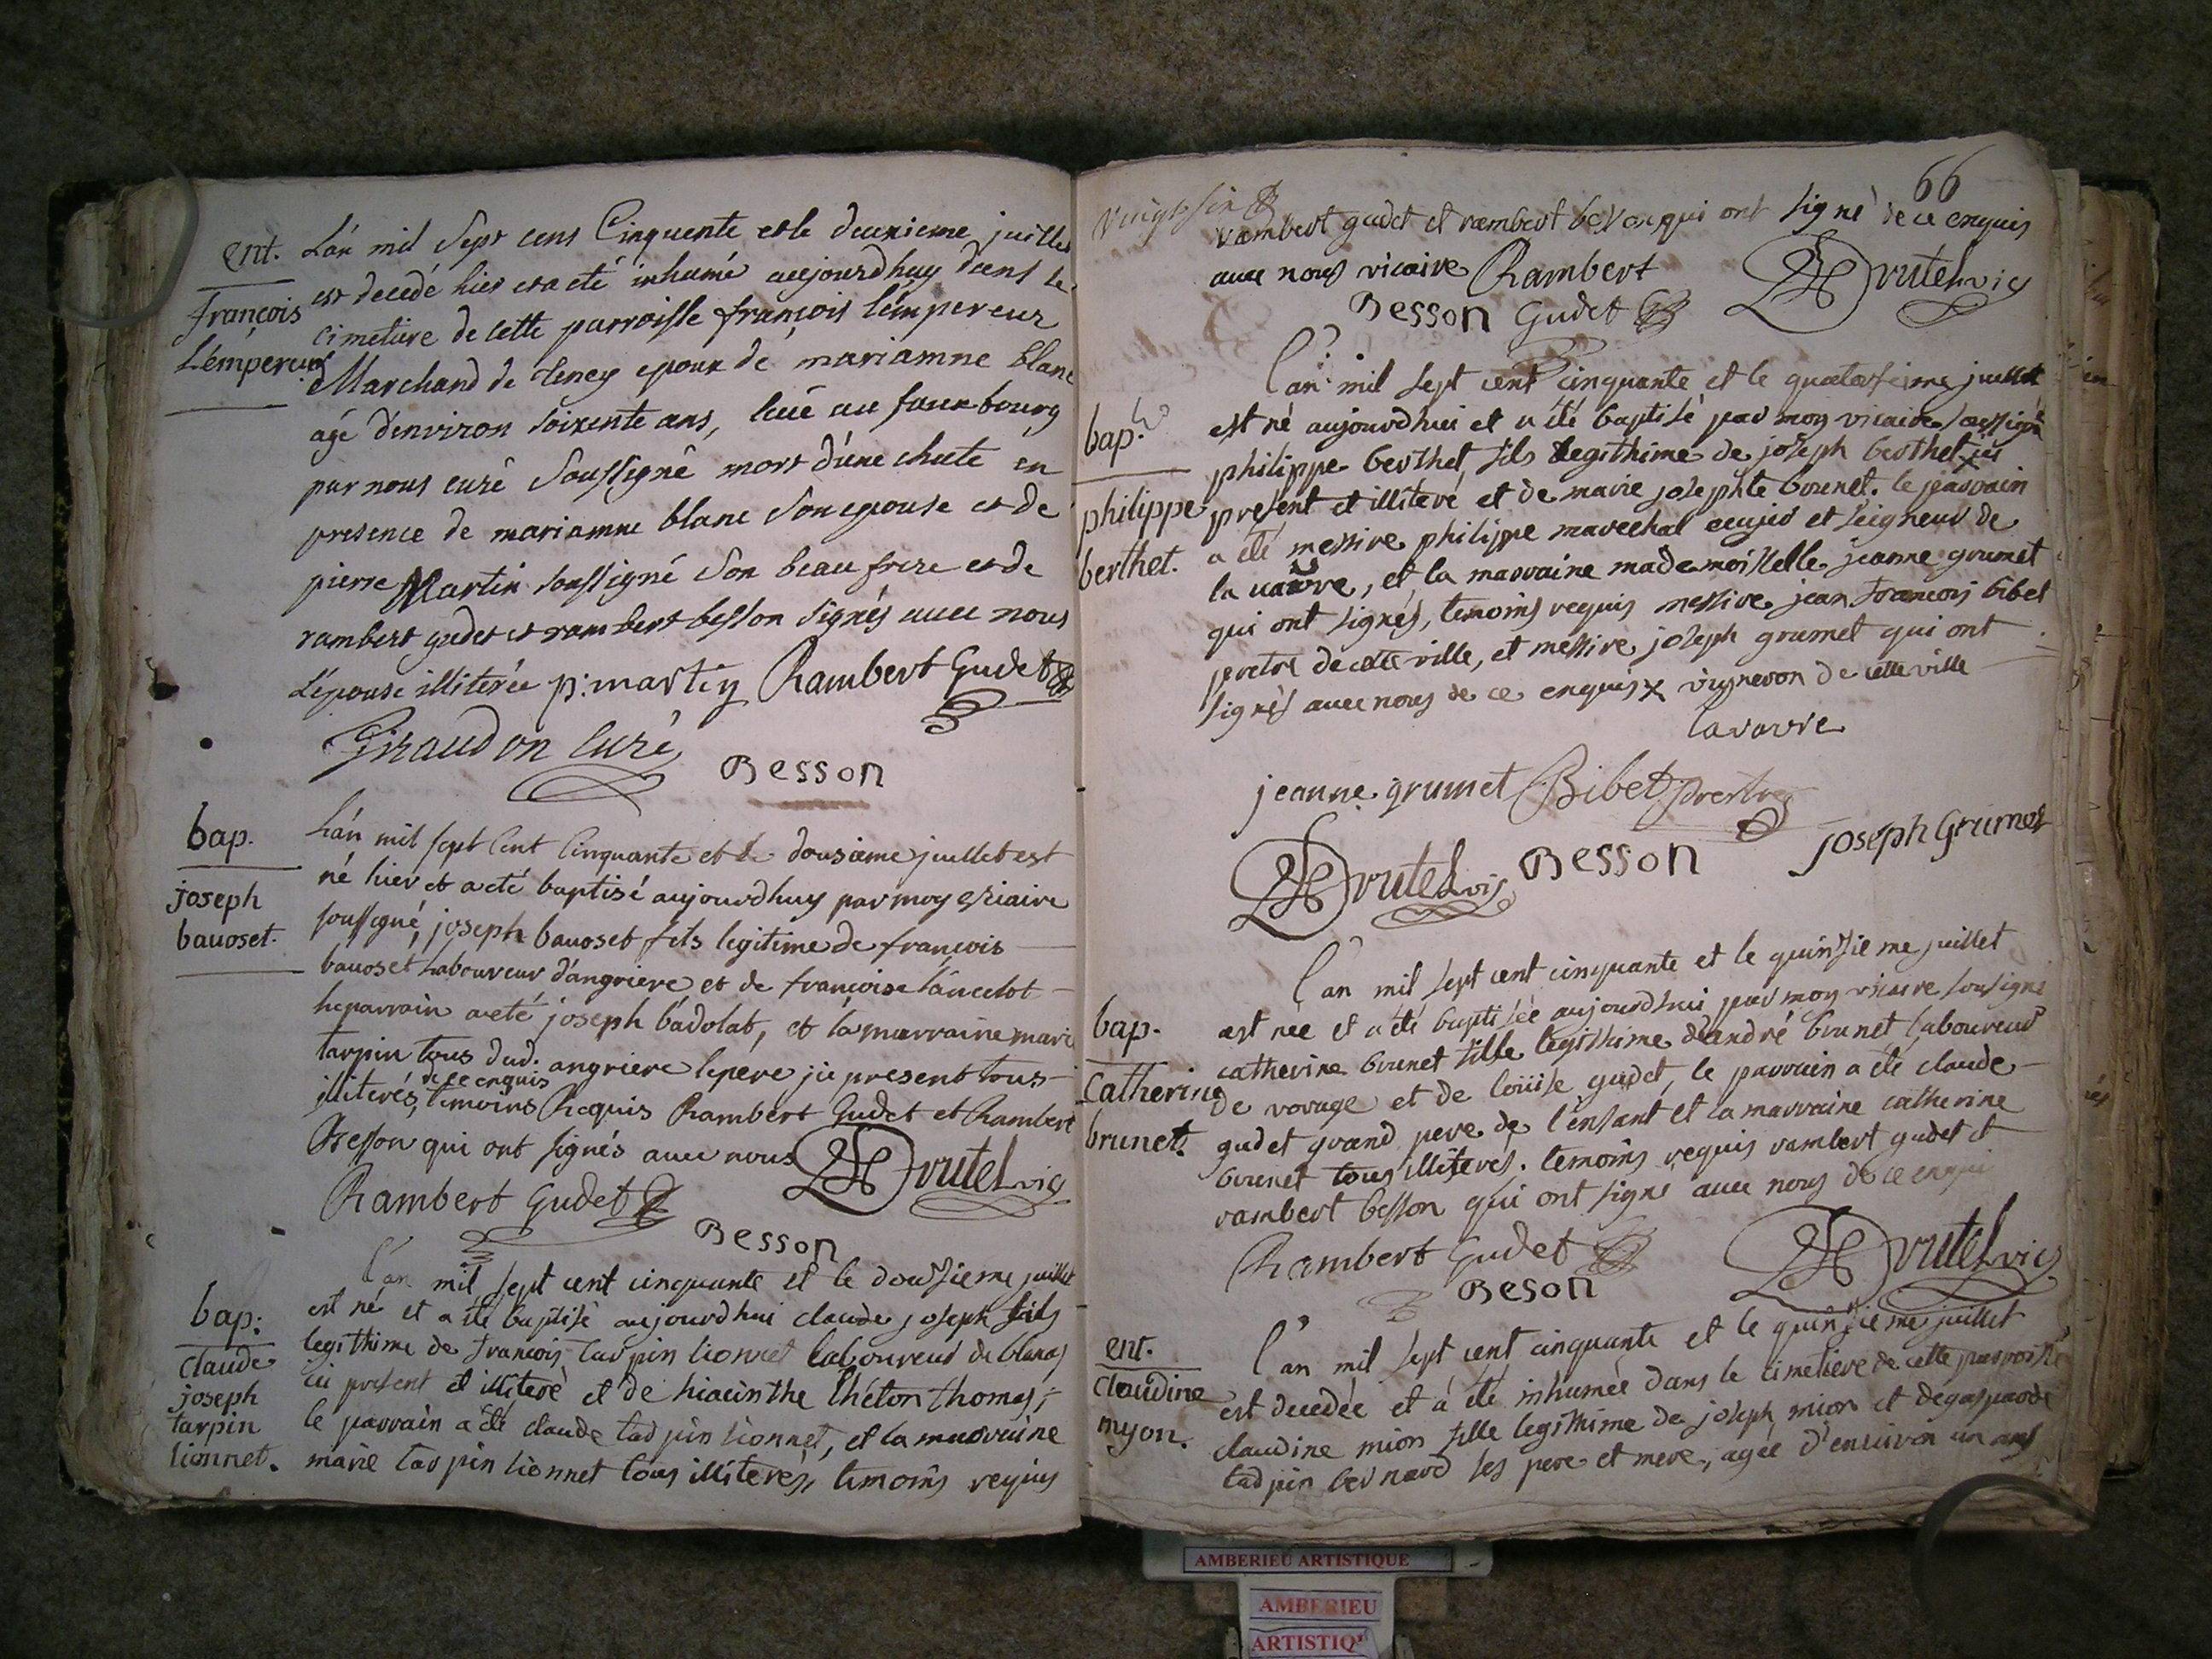 ent.
françois
L'émpereur
L'án mil Sept cens Cinquente et le deuxieme juillet
est decedé hier et a eté inhumé aujourdhuy dans le
cimetiere de cette parroisse françois l'émpereur
Marchand de epoux de mariamne blanc
agé d'environ soixente ans, au fauxbourg
par nous curé Soussigné mort d'une chute en
presence de mariamne blanc Son epouse et de
pierre Martin soussigné Son beau frere et de
rambert gudet et rambert besson signés avec nous
L'épouse illiterée p: martin Rambert Gudet
Giraudon Curé
Besson
bap.
joseph
bavoset.
L'án mil sept Cent Cinquante et le dousieme juillet est
né hier et a eté baptisé aujourdhuy par moy vicaire
soussigné, joseph bavoset fils legitime de françois
bavoset laboureur d'angriere et de françoise láncelot
le parrain a eté joseph bádolat, et la marraine marie
tarpin tous dud. angriere le pere icy present tous
de ce enquis
illiterés, temoins Requis Rambert Gudet et Rambert
Besson qui ont signés avec nous Drutel vic
Rambert Gudet
Besson
bap:
claude
joseph
tarpin
lionnet.
L'an mil sept cent cinquante et le dousieme juillet
est né et a été baptisé aujourdhui claude joseph fils
legithime de françois tarpin lionnet laboureur de blanas
ici present et illiteré et de hiacinthe théton thomas,
le parrain a été claude tarpin lionnet, et la marraine
marie tarpin lionnet tous illiterés, temoins requis
66
vingt six
rambert gudet et rambert besson qui ont signé de ce enquis
avec nous vicaire Rambert Drutel vic
Besson Gudet
bap.
philippe
berthet.
L'an mil sept cent cinquante et le quatorsieme juillet
est né aujourdhui et a été baptisé par moy vicaire soussigné
philippe berthet, fils legithime de joseph berthet x ici
present et illiteré et de marie josephte brunet. le parrain
a été messire philippe marechal ecuyer et seigneur de
la vavre, et la marraine mademoiselle jeanne grumet
qui ont signés, temoins requis messire jean françois bibet
pretre de cette ville, et messire joseph grumet qui ont
signés avec nous de ce enquis x vigneron de cette ville
lavavre
jeanne grumet Bibet prestre
joseph Grumet
Drutel vic Besson
bap.
Catherine
brunet.
L'an mil sept cent cinquante et le quinsieme juillet
est née et a été baptisée aujourdhui par moy vicaire soussigné
catherine brunet fille legithime d'andré brunet laboureur
de vorage et de loüise gudet, le parrain a été claude
gudet grand pere de l'enfant et la marraine catherine
brunet tous illiterés. temoins requis rambert gudet et
rambert besson qui ont signé avec nous de ce enqui
Rambert Gudet Drutel vic
Beson
ent.
claudine
myon.
L'an mil sept cent cinquante et le quinsieme juillet
est decedée et a été inhumée dans le cimetiere de cette parroisse
claudine mion fille legithime de joseph mion et de gasparde
tarpin bernard ses pere et mere, agée d'environ un ans
AMBERIEU ARTISTIQUE
AMBERIEU
ARTISTIQ